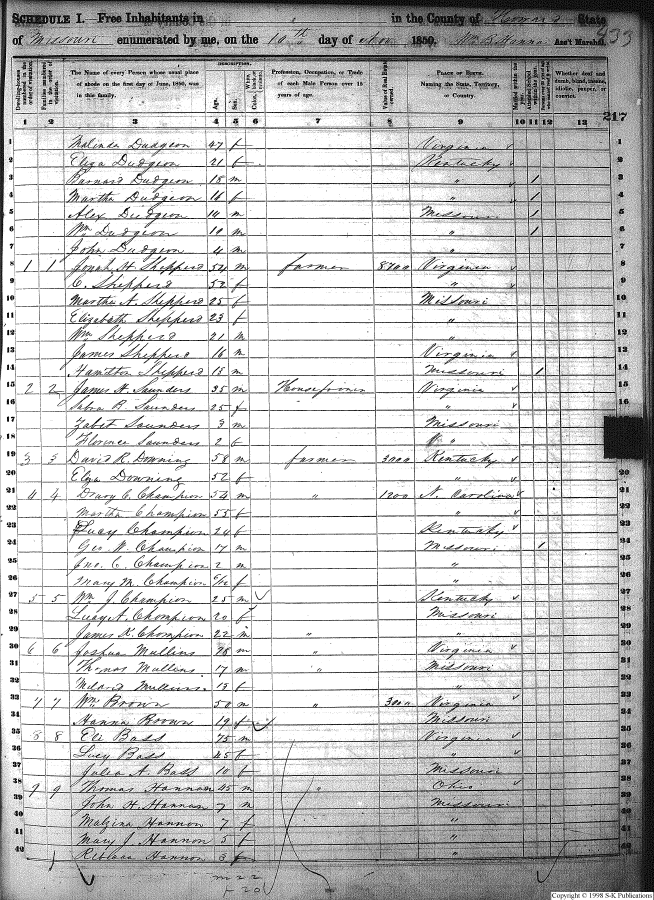 SCHEDULE I. Free Inhabitants in in the County of State 433
of Missouri enumerated by me, on the 10th day of Nov 1850. Wm B Hanna Ass't Marshal.
Dwelling-houses numbered in the order of visitation. Families numbered in the order of visitation. The Name of every Person whose usual place of abode on the first day of June, 1850, was in this family. DESCRIPTION. Age. Sex. Color, Profession, Occupation, or Trade of each Male Person over 15 years of age. Value of Real Estate owned. PLACE OF BIRTH. Naming the State, Territory, or Country. Married within the year. Whether deaf and dumb, blind, insane, idiotic, pauper, or convict.
1 2 3 4 5 6 7 8 9 10 11 12 13 217
1 Malinda Dudgeon 47 f Virginia 1
2 Eliza Dudgeon 21 f Kentucky 2
3 Barnard Dudgeon 18 m " 1 3
4 Martha Dudgeon 16 f " 1 4
5 Alex Dudgeon 14 m Missouri 1 5
6 Wm Dudgeon 10 m " 1 6
7 John Dudgeon 4 m " 7
8 1 1 Jonah H Shepperd 54 m farmer 8700 Virginia 8
9 C. Shepperd 52 f " 9
10 Martha A. Shepperd 25 f Missouri 10
11 Elizabeth Shepperd 23 f " 11
12 Wm Shepperd 21 m " 12
13 James Shepperd 16 m Virginia 13
14 Hamilton Shepperd 15 m Missouri 1 14
15 2 2 James H Saunders 35 m Virginia 15
16 Sabra R. Saunders 25 f " 16
17 Saunders 3 m Missouri 17
18 Florence Saunders 2 f " 18
19 3 3 David R. Downing 58 m farmer 3000 Kentucky 19
20 Eliza Downing 52 f " 20
21 4 4 Drury C. Champion 54 m " 1200 N. Carolina 21
22 Martha Champion 53 f " 22
23 Lucy Champion 24 f Kentucky 23
24 Geo. W. Champion 17 m Missouri 1 24
25 Jno. C. Champion 2 m " 25
26 Mary M. Champion 6/12 f " 26
27 5 5 Wm J. Champion 25 m Kentucky 27
28 Lucy A. Champion 20 f Missouri 28
29 James K. Champion 22 m " " 29
30 6 6 Joshua Mullins 78 m " Virginia 30
31 Thomas Mullins 17 m " Missouri 31
32 Mullins 13 f " 32
33 7 7 Wm Brown 50 m " 300 Virginia 33
34 Hanna Brown 19 f Missouri 34
35 8 8 Eli Bass 75 m Virginia 35
36 Lucy Bass 45 f " 36
37 Julia A. Bass 10 f Missouri 37
38 9 9 Thomas Hannon 45 m " Ohio 38
39 John H. Hannon 7 m Missouri 39
40 Malzina Hannon 7 f " 40
41 Mary J Hannon 5 f " 41
42 Rebecca Hannon 3 f " 42
m 22
f 20
Copyright © 1998 S-K Publications